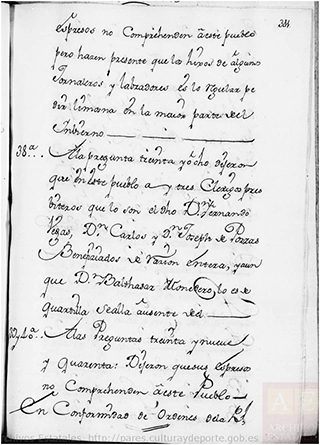 384
espresos no Comprehenden a este pueblo
pero hazen presente que los hixos de algunos
Jornaleros y labradores es lo regular pe
dir limosna en la maior parte del
Imbierno
38.ª Ala pregunta treinta y ocho dijeron
que en este pueblo a y tres Clerigos pres
biteros que lo son el dho D.n Fernando
Vegas, D.n Carlos y D.n Joseph de Porras
Benefiziados de razion entera, y aun
que D.n Balthasar Monedero, lo es de
quartilla se alla ausente de el
39 y 40.ª Alas Preguntas treinta y nueve
y quarenta: Dijeron que sus espresos
no Comprehenden a este Pueblo
En Conformidad de Ordenes de la R.l
http://pares.culturaydeporte.gob.es